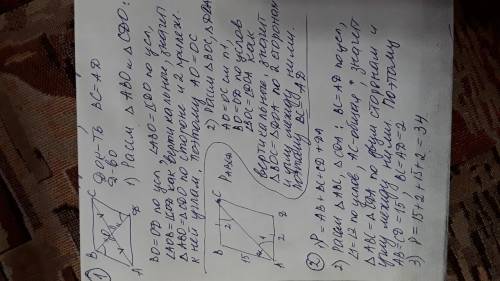 ① B C Док-ть BC=AD
A D Д-во
1) Расм △ABO и △CDO:
BO=OD по усл, ∠ABO=∠CDO по усл,
∠AOB=∠COD как вертикальные, значит
△ABO=△CDO по стороне и 2 прилеж.
к ней углам. Поэтому AO=OC
2) Расм △BOC, △DOA
AO=OC из п1,
BO=OD по услов
∠BOC=∠DOA как
вертикальные, значит
△BOC=△DOA по 2 сторонам
и углу между ними.
Поэтому BC=AD
B C PABCD
15 2
1
A 2 D
② P=AB+BC+CD+DA
2) Расм △ABC, △CDA: BC=AD по усл,
∠1=∠2 по услов, AC-общая, значит
△ABC=△CDA по двум сторонам и
углу между ними. Поэтому
AB=CD=15 BC=AD=2
3) P=15·2+15·2=34